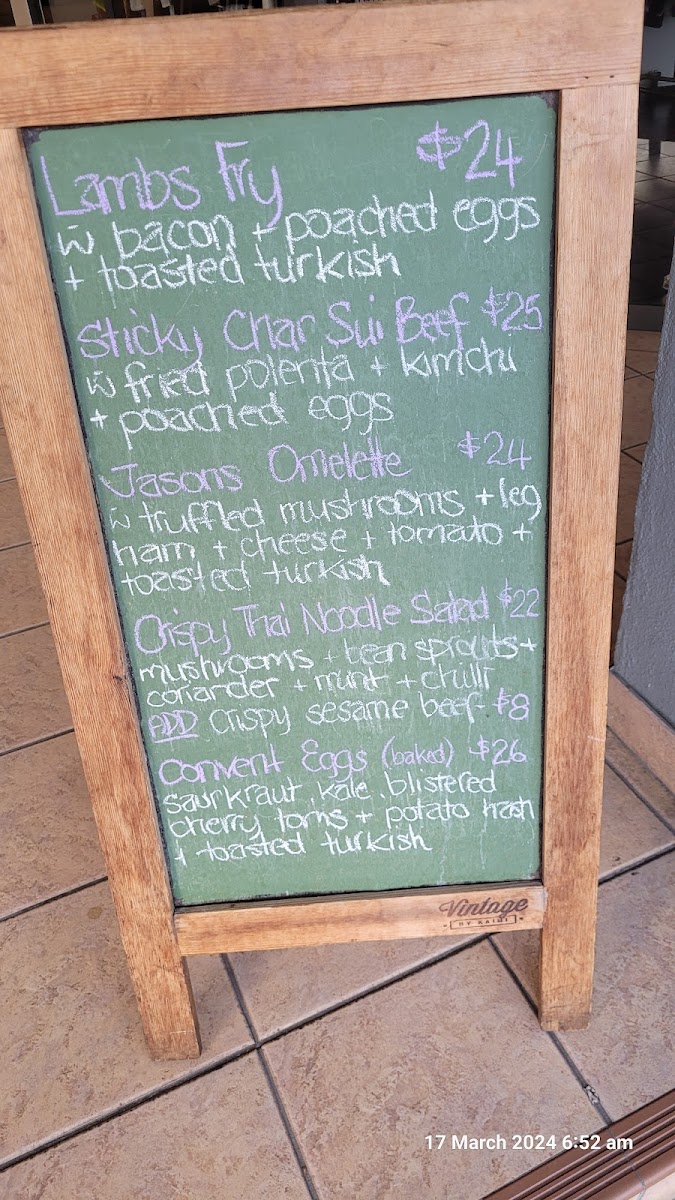 Lambs Fry $24
w̄ bacon + poached eggs
+ toasted turkish
Sticky Char Sui Beef $25
w̄ fried polenta + kimchi
+ poached eggs
Jasons Omelette $24
w̄ truffled mushrooms + leg
ham + cheese + tomato +
toasted turkish
Crispy Thai Noodle Salad $22
mushrooms + bean sprouts +
coriander + mint + chilli
ADD crispy sesame beef - $8
Convent Eggs (baked) $26
saurkraut, kale, blistered
cherry toms + potato hash
+ toasted turkish
Vintage
BY KAIMI
17 March 2024 6:52 am